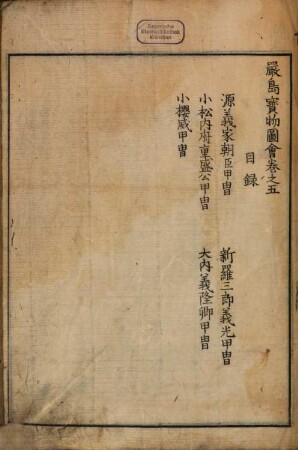 Bayerische
Staatsbibliothek
München
嚴島寳物圖會卷之五
目録
源義家朝臣甲冑
新羅三郎義光甲冑
小松内府重盛公甲冑
大内義隆卿甲冑
小櫻威甲冑